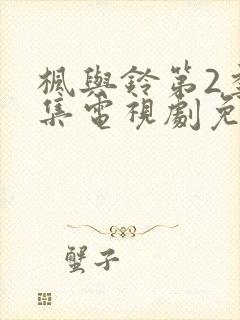 楓與鈴第2
集電視劇免
蟹子